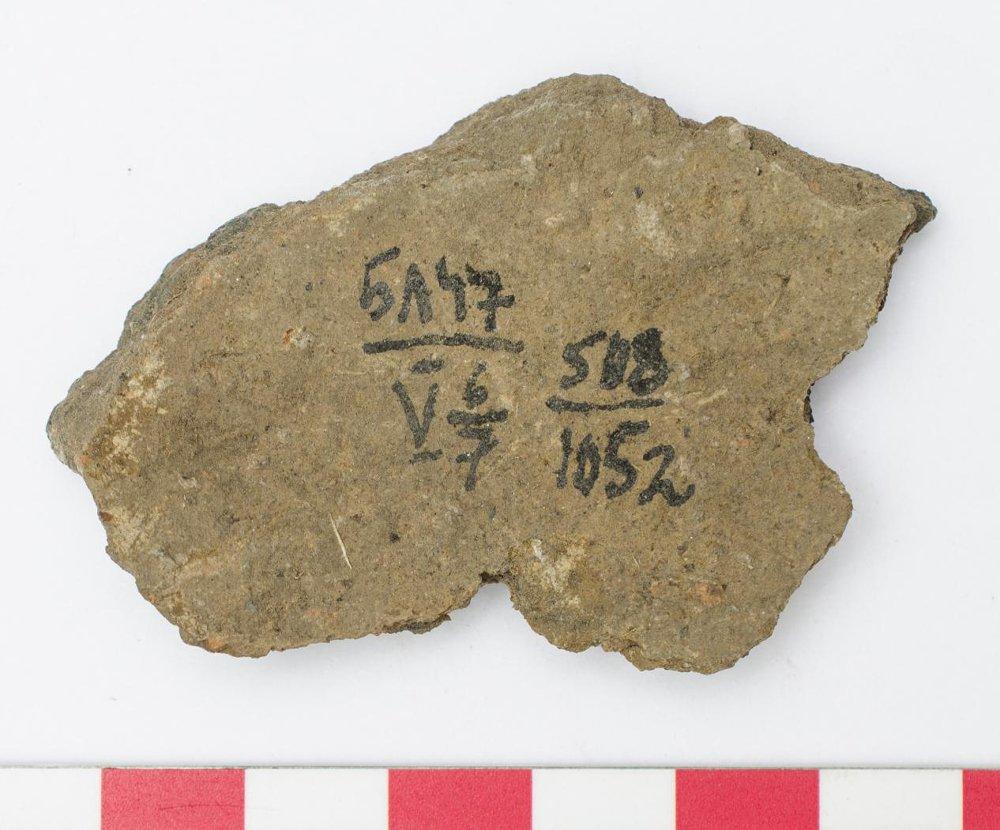 БЛ47
V 6
7
508
1052